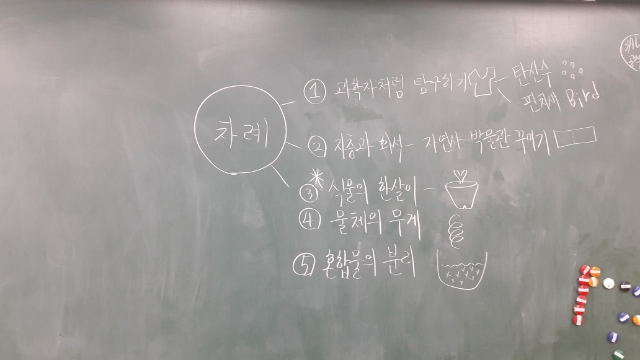 차례
① 과학자처럼 탐구하기 - 탄산수
편치새 Bird
② 지층과 화석 - 자연사 박물관 꾸미기
* ③ 식물의 한살이 -
④ 물체의 무게
⑤ 혼합물의 분리